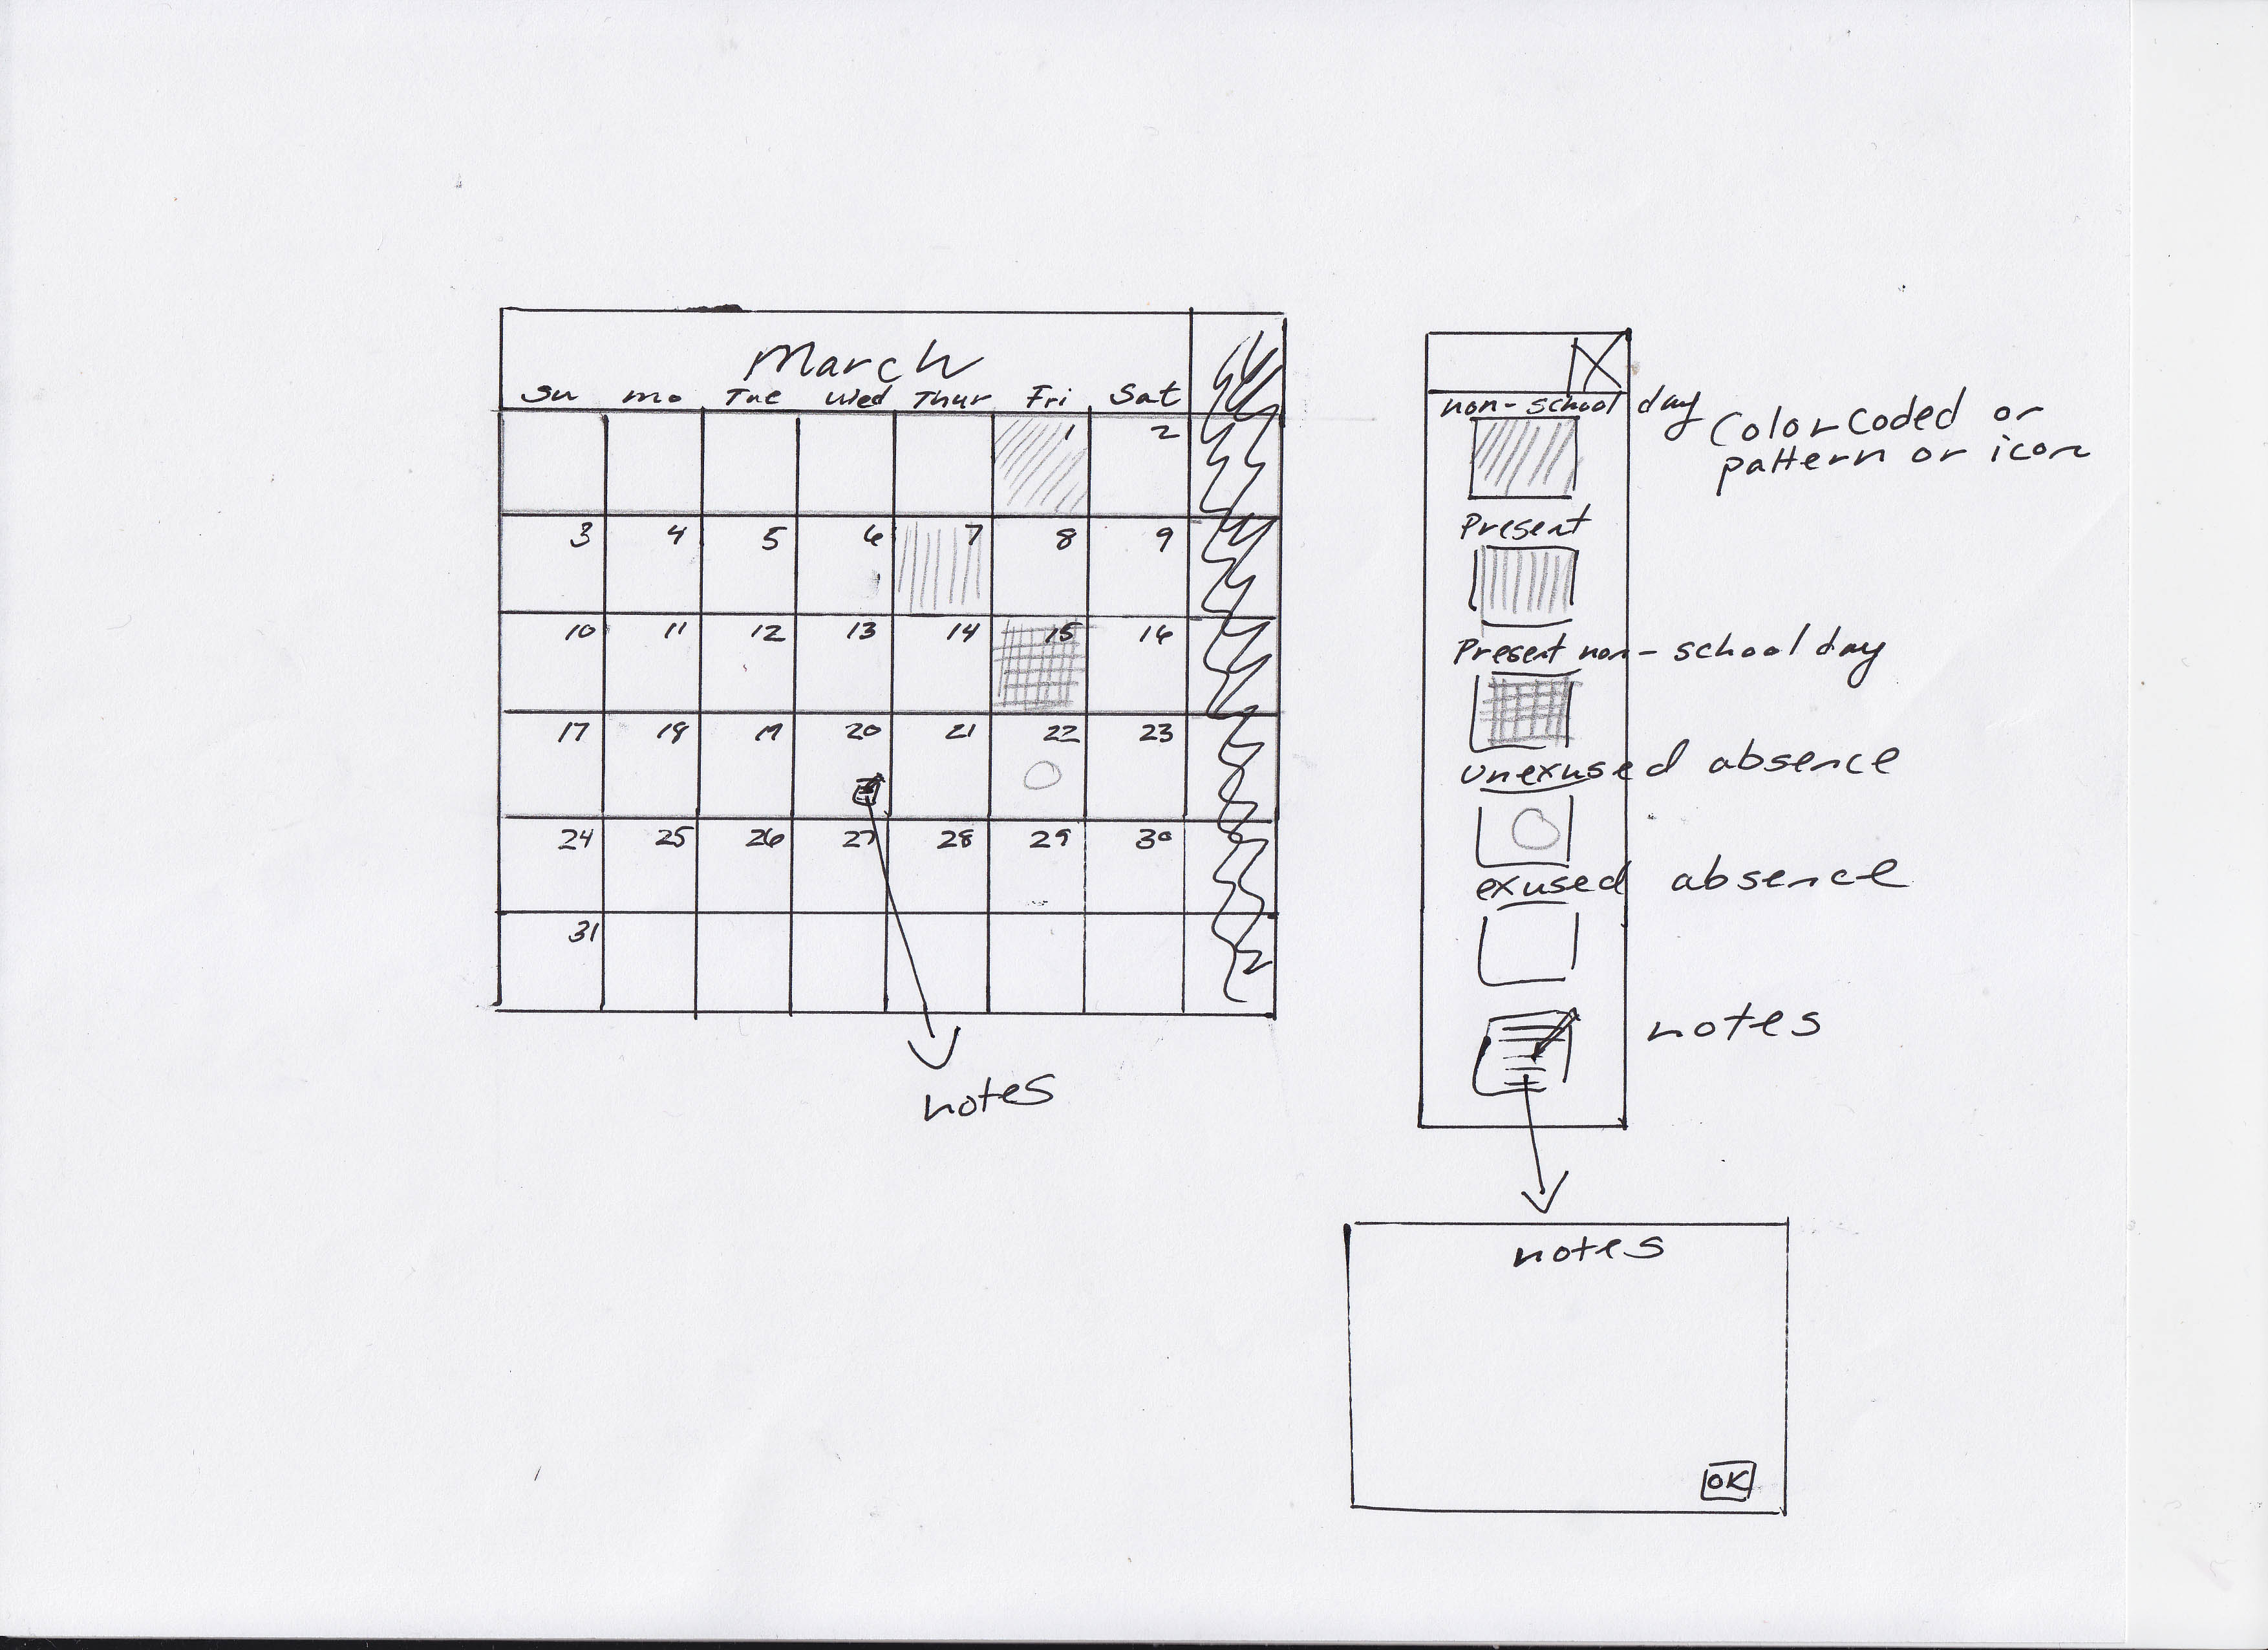 March
Su mo Tue Wed Thur Fri Sat
1 2
3 4 5 6 7 8 9
10 11 12 13 14 15 16
17 18 19 20 21 22 23
24 25 26 27 28 29 30
31
notes
non-school day
Color Coded or
pattern or icon
Present
Present non-school day
unexused absence
exused absence
notes
notes
OK